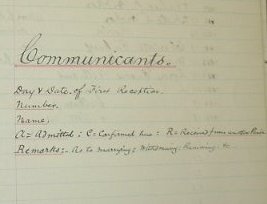 Communicants.
Day & Date of First Reception.
Number.
Name.
A = Admitted : C = Confirmed here : R = Received from another
Remarks:- As to marrying: &c